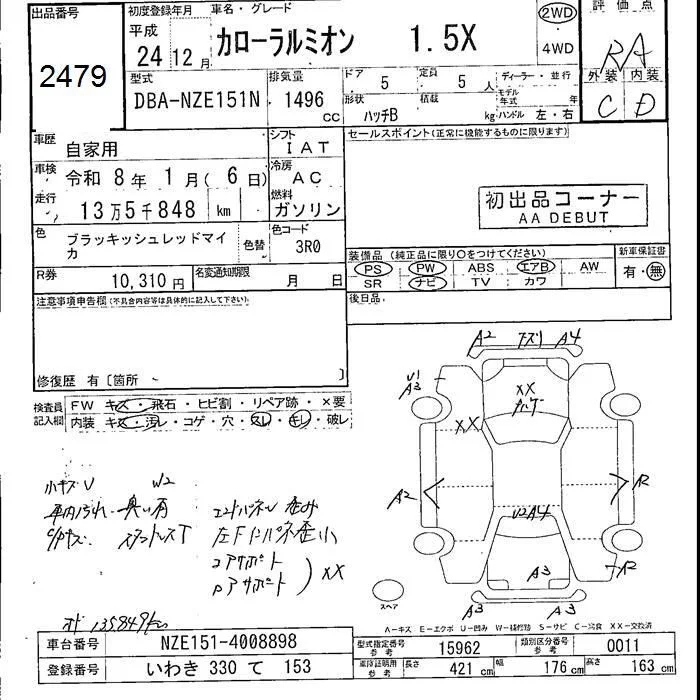 出品番号
2479
初度登録年月
平成
24 12月
車名・グレード
カローラルミオン 1.5X
2WD
4WD
評価点
RA
外装 内装
C D
型式
DBA-NZE151N
排気量
1496
cc
ドア 5
定員 5人
形状 ハッチB
積載 kg
ディーラー・並行
モデル年式 年
ハンドル 左・右
車歴 自家用
シフト IAT
車検 令和 8年 1月(6日)
冷房 AC
走行 13万5千848 km
燃料 ガソリン
色 ブラッキッシュレッドマイカ
色替
色コード 3R0
R券 10,310円
名変通知期限 月 日
セールスポイント(正常に機能するものに限ります)
初出品コーナー
AA DEBUT
装備品(純正品に限り○をつけてください)
PS PW ABS エアB AW
SR ナビ TV カワ
新車保証書
有・無
後日品
注意事項申告欄(不具合内容等は具体的に記入して下さい)
修復歴 有〔箇所 〕
検査員記入欄
FW キズ・飛石・ヒビ割・リペア跡・×要
内装 キズ・汚レ・コゲ・穴・スレ・キレ・破レ
小キズU W2
車内汚れ・臭い有
エンドパネル 歪み
左F
コアサポート
Rアサポート
XX
135849km
A2 A4
U1
A3
XX
XX
A2
R
U2A4
A3
R
A3 A3
スペア
A-キズ E-エクボ U-凹み W-補修跡 S-サビ C-腐食 XX-交換済
車台番号 NZE151-4008898
登録番号 いわき 330 て 153
型式指定番号 参考 15962
類別区分番号 参考 0011
車庫証明用 参考 長さ 421cm 幅 176cm 高さ 163cm